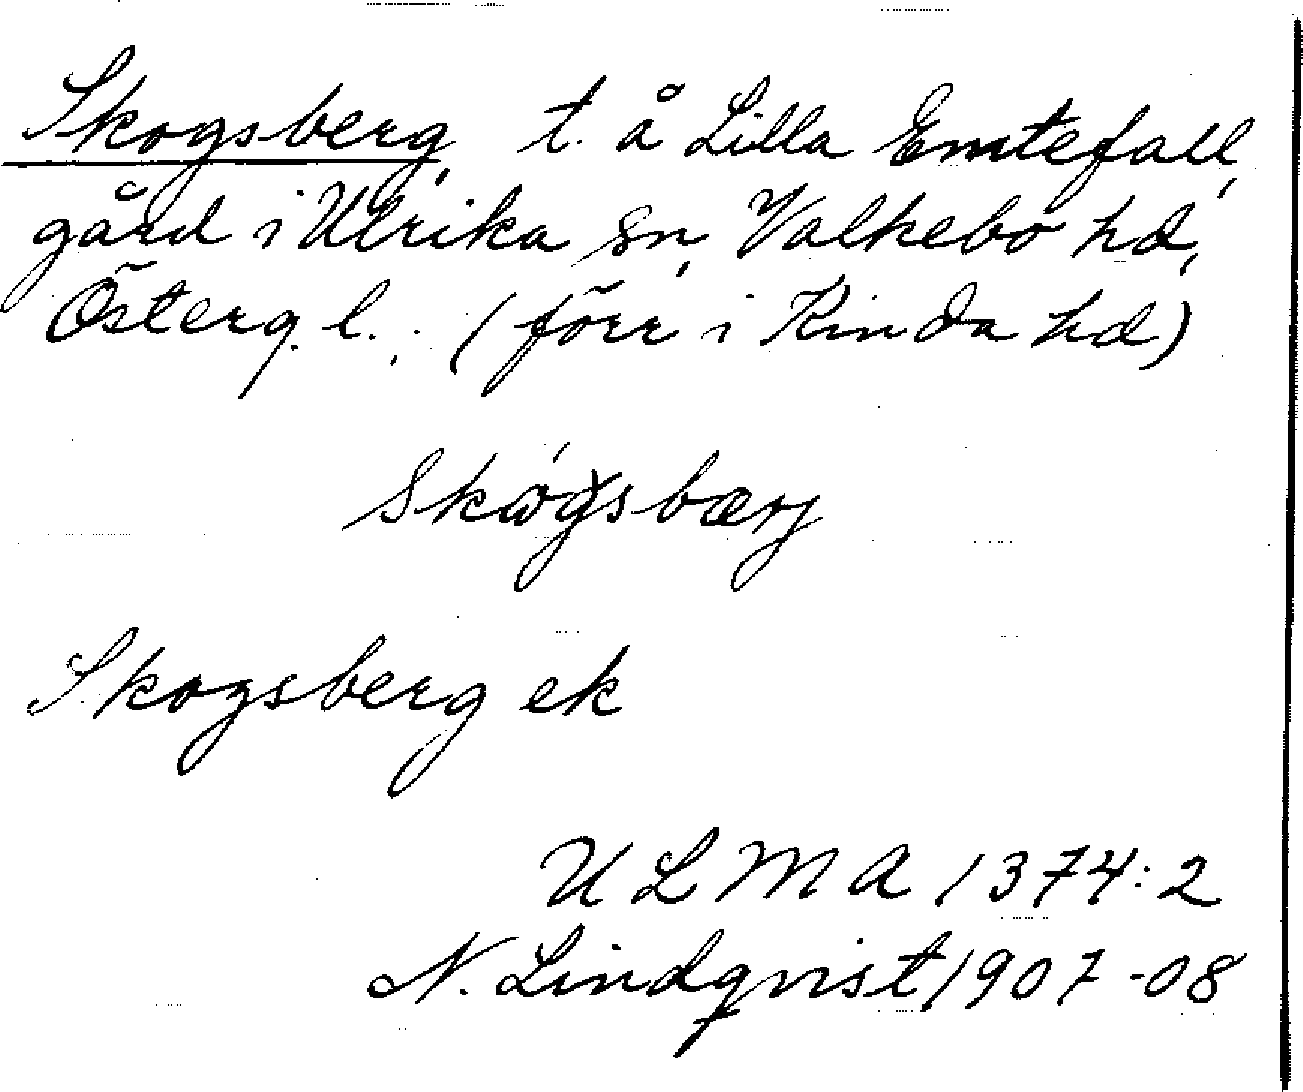 Skogsberg, t. å Lilla Emtefall,
gård i Ulrika sn, Valkebo hd,
Österg. l., (förr i Kinda hd)
Skogsbærj
Skogsberg ek
ULMA 1374:2
N. Lindqvist 1907-08